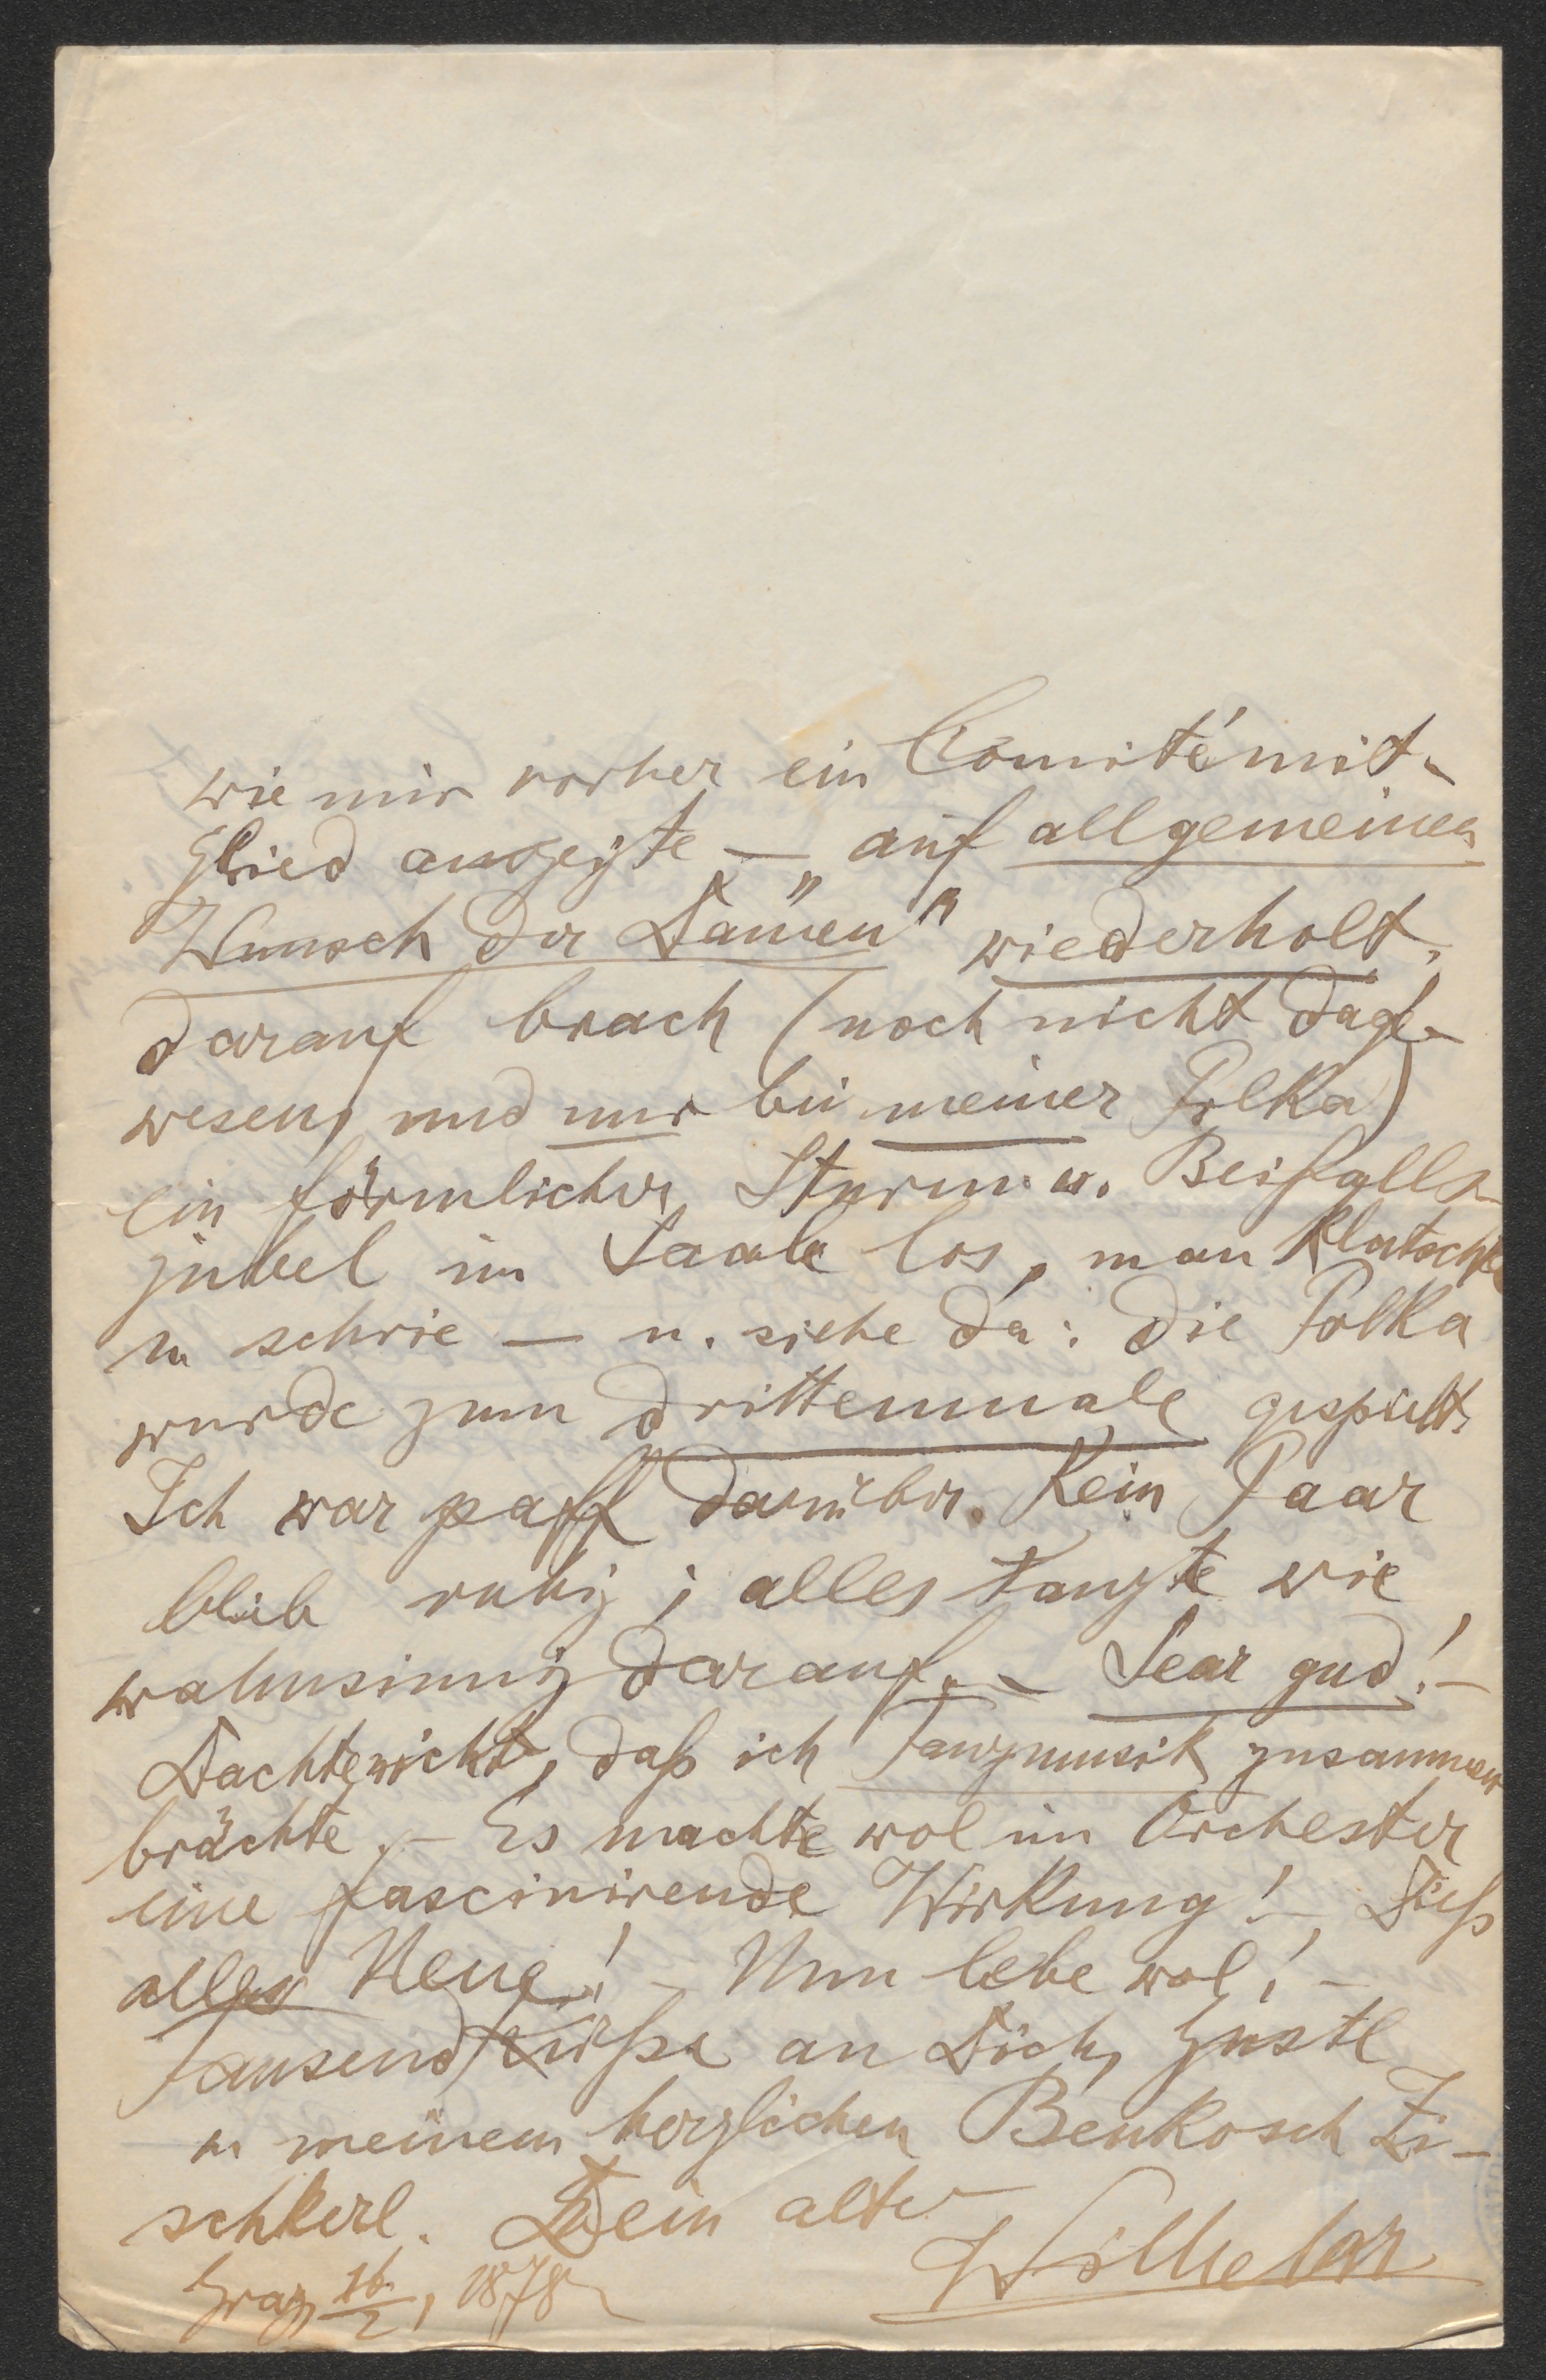 wie mir vorher ein Comitémit-
glied anzeigte — „auf allgemeinen
Wunsch der Damen" wiederholt,
darauf brach (noch nicht dage-
wesen, und nur bei meiner Polka)
ein förmlicher Sturm u. Beifalls-
jubel im Saale los, man klatschte
u. schrie — u. siehe da: die Polka
wurde zum drittenmale gespielt.
Ich war paff darüber. Kein Paar
blieb ruhig; alles tanzte wie
wahnsinnig darauf. – Sear gud! –
Dachte nicht, daß ich Tanzmusik zusammen
brächte. – Es machte wol im Orchester
eine fascinirende Wirkung! – Dieß
alles Neue! – Nun lebe wol! –
Tausend Küsse an Dich, Gustl
u. meinem herzlichen Benkosch Zi-
schkerl. Dein alter
Wilhelm
Graz 16/2, 1878